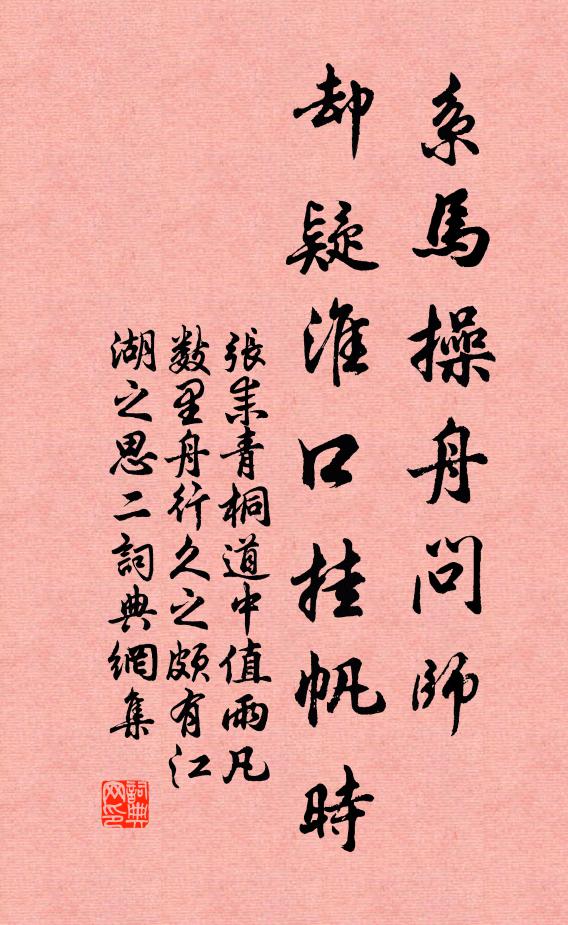 系馬操舟問師
却疑淮口挂帆時
張耒青桐道中值雨凡
数里舟行久之頗有江
湖之思二詞典網集
詞典网印